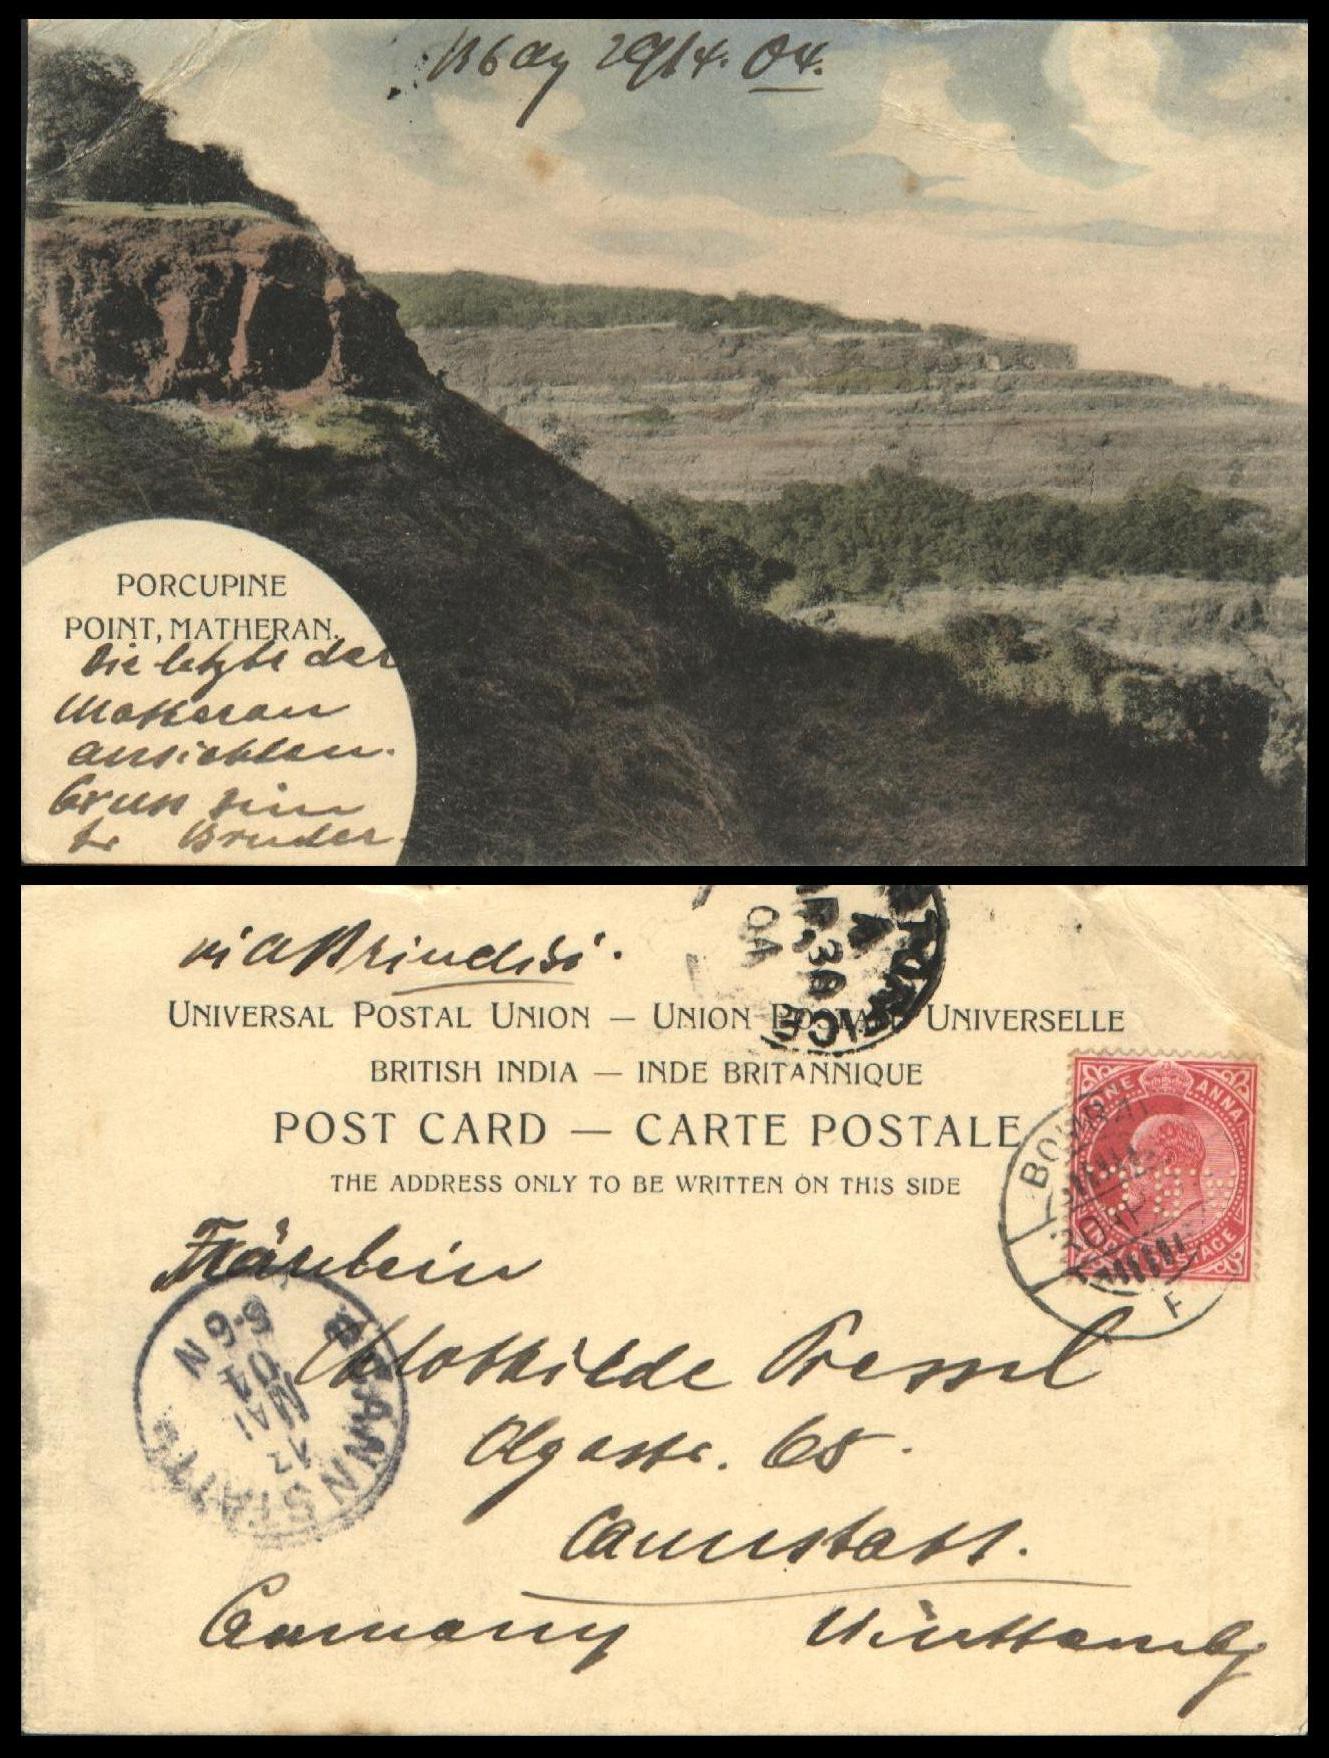 Bbay 29/4.04.
PORCUPINE
POINT, MATHERAN.
Die letzte der
Matheran
ansichten.
Gruss Dein
Br Bruder.
via Brindisi.
UNIVERSAL POSTAL UNION — UNION POSTALE UNIVERSELLE
BRITISH INDIA — INDE BRITANNIQUE
POST CARD — CARTE POSTALE
THE ADDRESS ONLY TO BE WRITTEN ON THIS SIDE
AP 30
04
ONE ANNA
POSTAGE
BOMBAY
30 AP
F
Fräulein
Clothilde Pressel
Olgastr. 68.
Cannstatt.
Germany Württembg
CANNSTATT
MAI
04
5-6 N